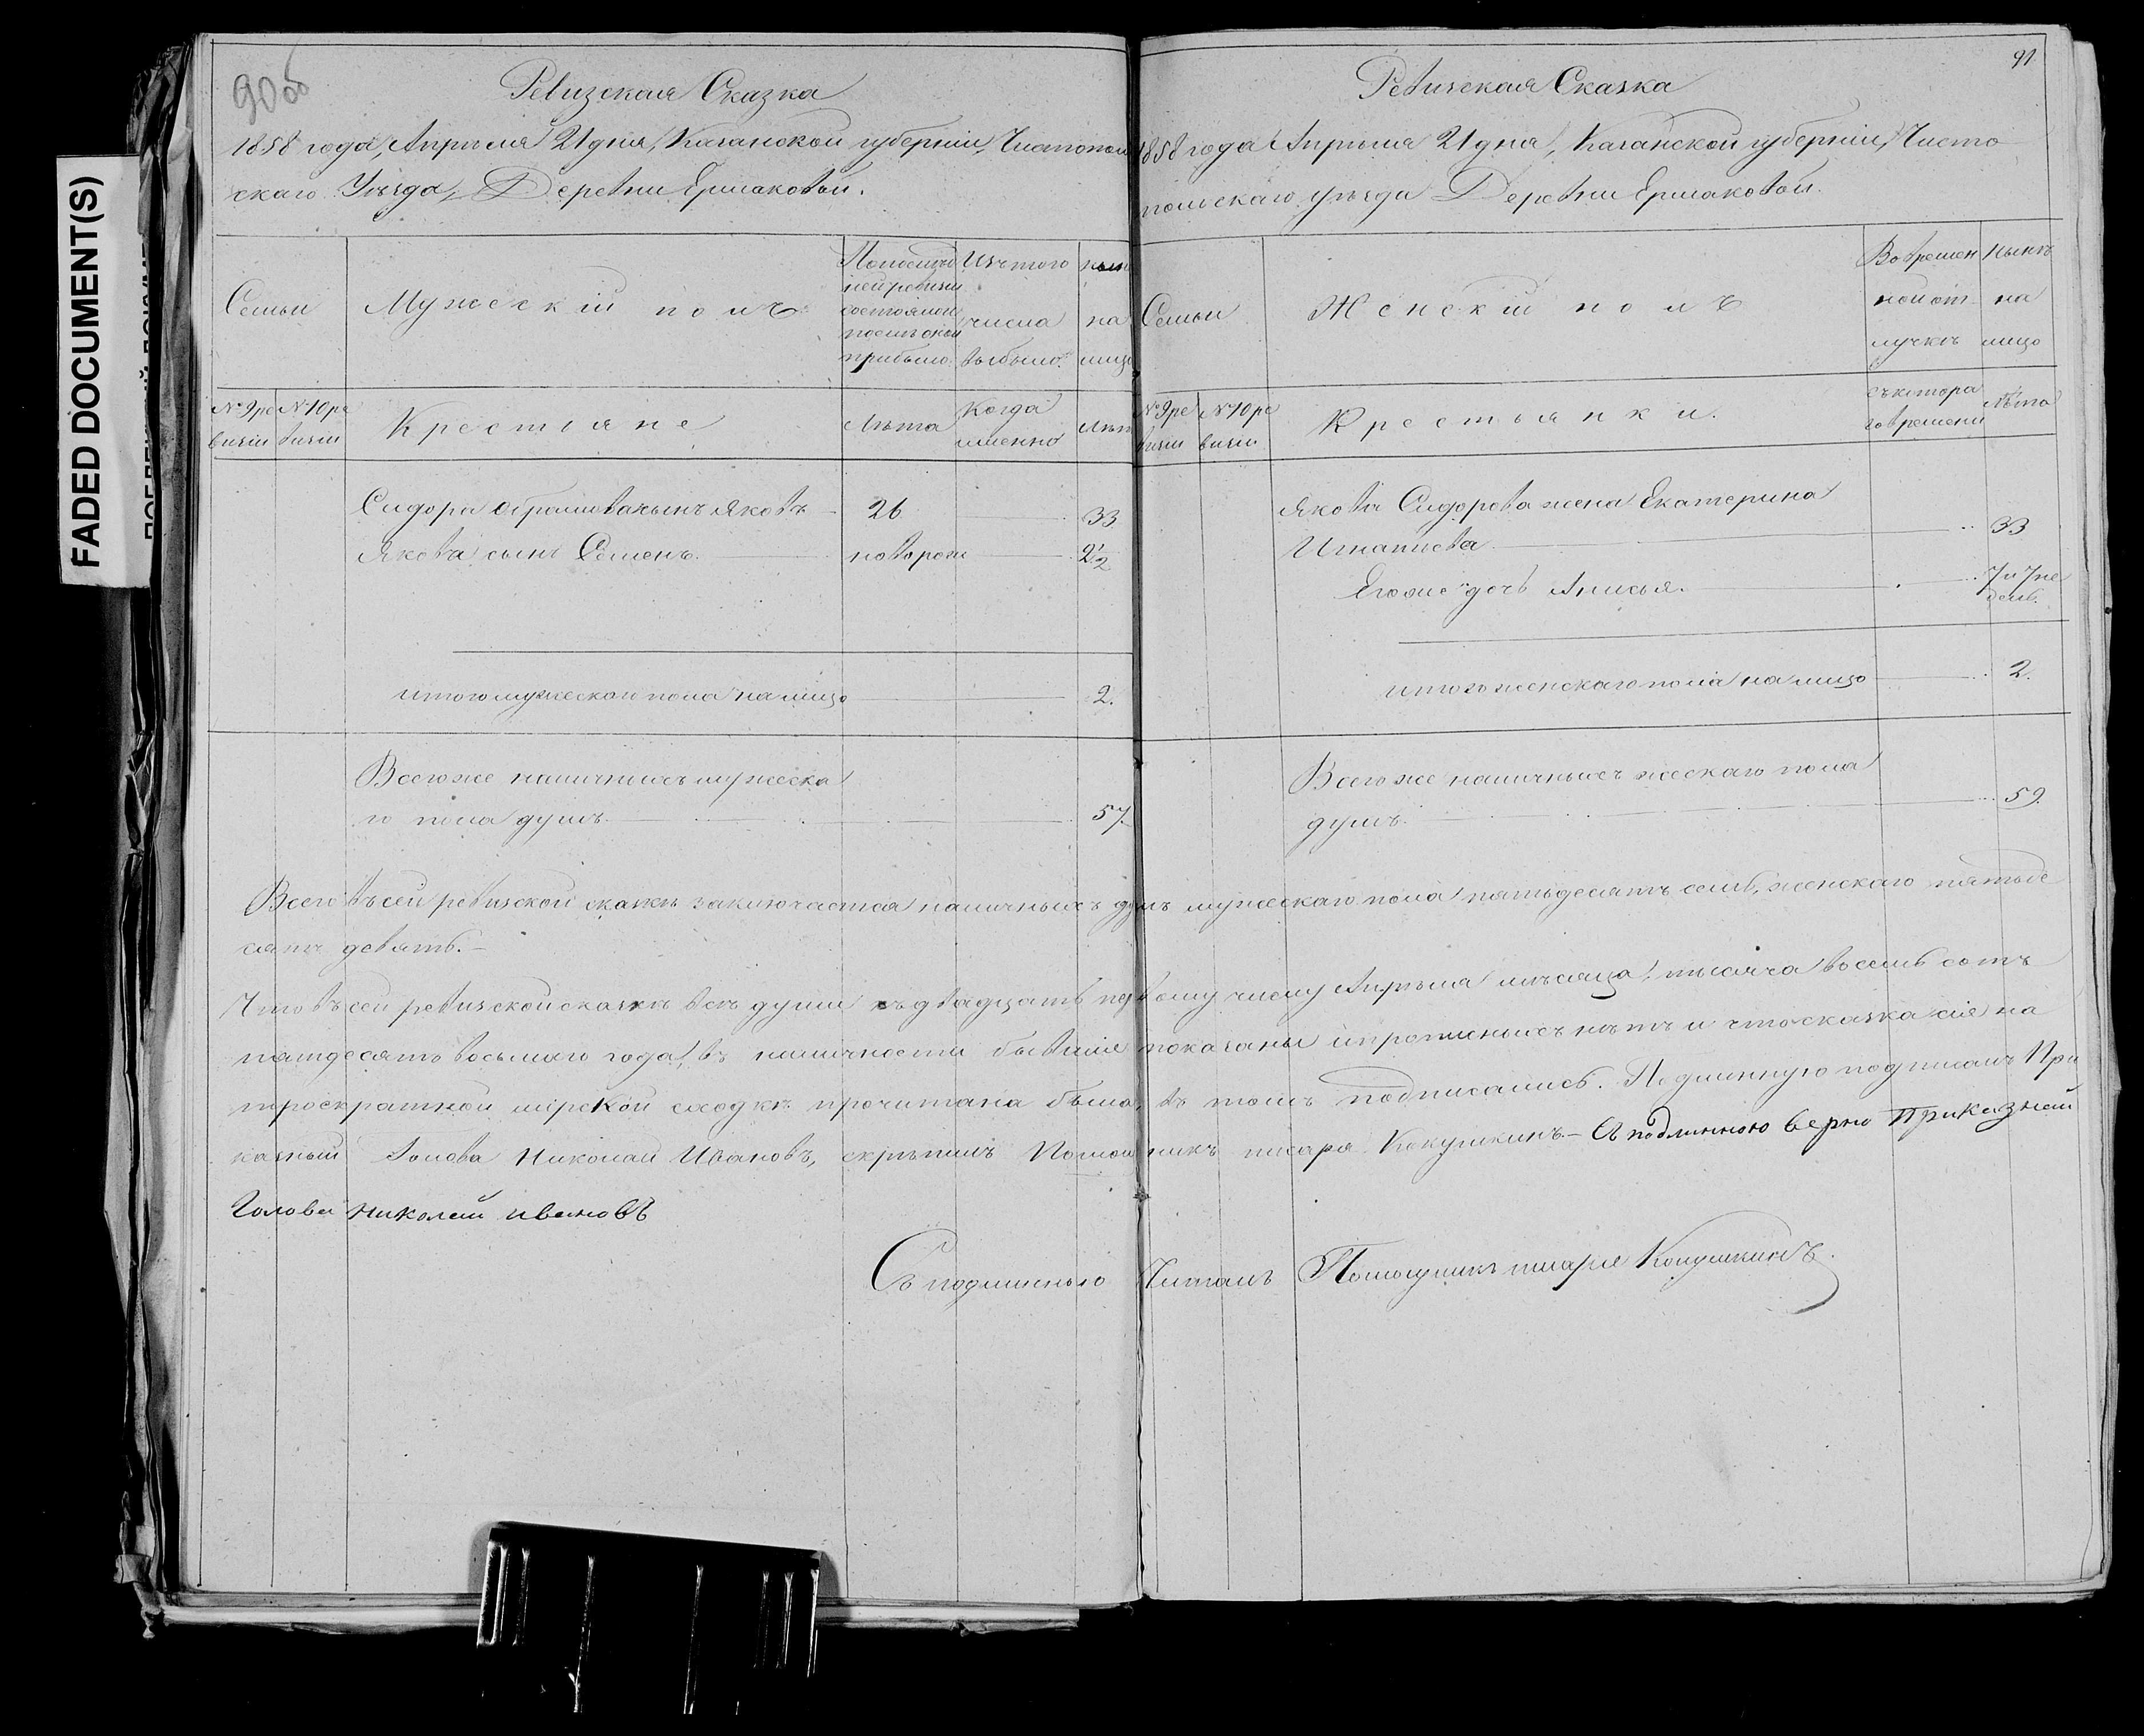 FADED DOCUMENT(S)
90 об
Ревизская Сказка
1858 года, Апрѣля 21 дня, Казанской губерніи, Чистополь
скаго Уѣзда, Деревни Ермаковой.
Семьи
Мужескій полъ
По послѣд
ней ревизіи
состояло и
послѣ оной
прибыло.
Изъ того
числа
выбыло.
на
лицо
№ 9 ре
визіи
№ 10 ре
визіи
Крестьяне
Лѣта
Когда
именно
Лѣт
Сидора Абрамова сынъ Яковъ 26 33
Якова сынъ Семенъ. новорож 2 1/2
итого мужескаго пола на лицо 2.
Всего же наличныхъ мужеска
го пола душъ 57.
91
Ревизская Сказка
1858 года Апрѣля 21 дня, Казанской губерніи, Чисто
польскаго уѣзда Деревни Ермаковой.
Семьи
Женскій полъ
Во времен
ной от
лучкѣ
Нынѣ
на
лицо
№ 9 ре
визіи
№ 10 ре
визіи
Крестьянки.
съ котора
го времени
Лѣта
Якова Сидорова жена Екатерина
Игнатьева 33
Его же дочь Анисья. 7 и 7 не
дель.
итого женскаго пола на лицо 2.
Всего же наличныхъ жескаго пола
душъ. 59.
Всего въ сей ревизской сказкѣ заключается наличныхъ душъ мужескаго пола пятьдесятъ семь, женскаго пятьде
сятъ девять.—
Что въ сей ревизской сказкѣ всѣ души къ двадцать первому числу Апрѣля мѣсяца, тысяча восемь сотъ
пятдесятъ восьмаго года, въ наличности бывшія показаны и прописныхъ нѣтъ и что сказка сія на
троекратной мірской сходкѣ прочитана была, въ томъ подписались. Подлинную подписалъ При
казный Голова Николай Ивановъ, скрѣпилъ Помощникъ писаря Кокушкинъ.— А подлинною верно приказной
Голова николай ивановъ
Съ подлинною Читалъ Помощникъ писаря Кокушкинъ.